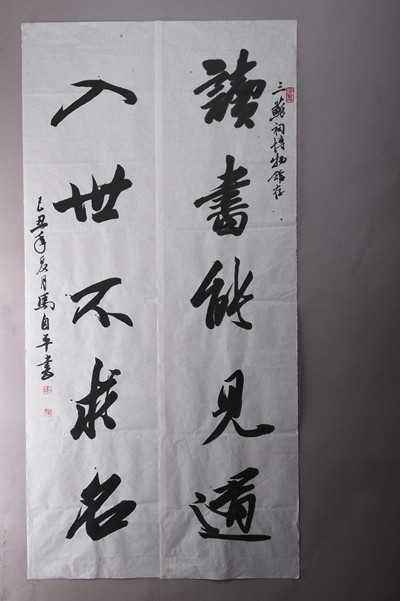 三蘇祠博物館存
讀書能見道
入世不求名
己丑年夏月馬自平書